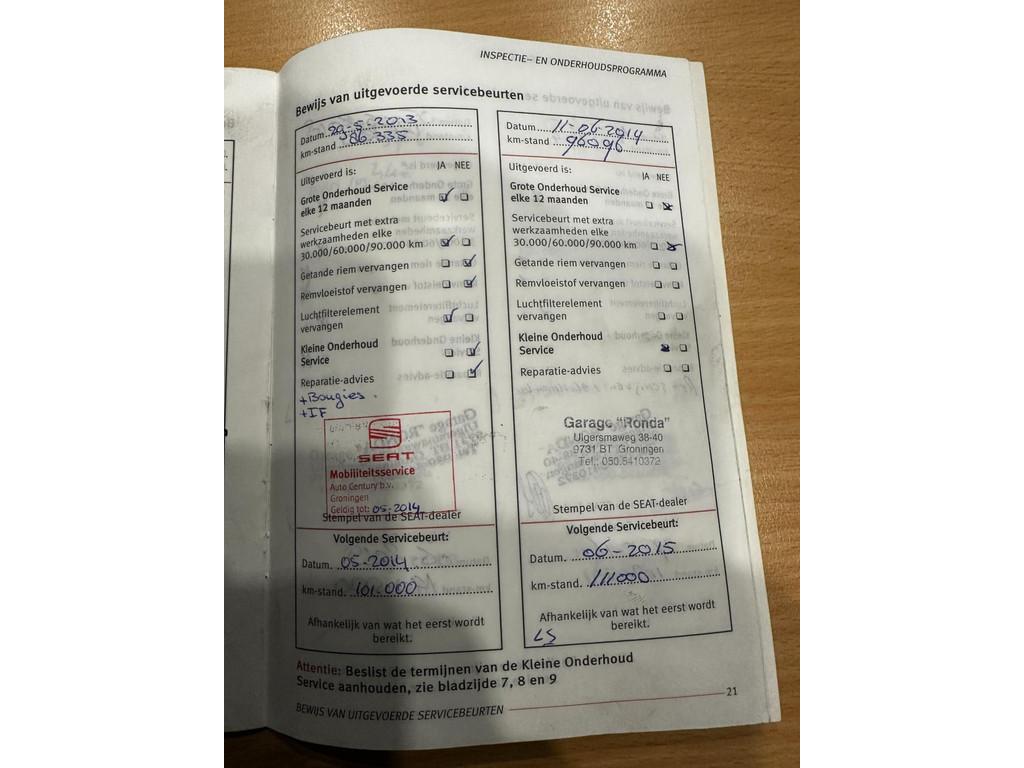 INSPECTIE– EN ONDERHOUDSPROGRAMMA
Bewijs van uitgevoerde servicebeurten
Datum..20-5-2013
km-stand 86.335
Uitgevoerd is: JA NEE
Grote Onderhoud Service
elke 12 maanden
Servicebeurt met extra
werkzaamheden elke
30.000/60.000/90.000 km
Getande riem vervangen
Remvloeistof vervangen
Luchtfilterelement
vervangen
Kleine Onderhoud
Service
Reparatie-advies
+Bougies.
+IF
SEAT
Mobiliteitsservice
Auto Century b.v.
Groningen
Geldig tot: 05-2014
Stempel van de SEAT-dealer
Volgende Servicebeurt:
Datum. 05-2014
km-stand. 101.000
Afhankelijk van wat het eerst wordt
bereikt.
Datum....11-06-2014
km-stand 96096
Uitgevoerd is: JA NEE
Grote Onderhoud Service
elke 12 maanden
Servicebeurt met extra
werkzaamheden elke
30.000/60.000/90.000 km
Getande riem vervangen
Remvloeistof vervangen
Luchtfilterelement
vervangen
Kleine Onderhoud
Service
Reparatie-advies
Garage "Ronda"
Ulgersmaweg 38-40
9731 BT Groningen
Tel.: 050.5410372
Stempel van de SEAT-dealer
Volgende Servicebeurt:
Datum. 06-2015
km-stand. 111000
Afhankelijk van wat het eerst wordt
bereikt.
LS
Attentie: Beslist de termijnen van de Kleine Onderhoud
Service aanhouden, zie bladzijde 7, 8 en 9
BEWIJS VAN UITGEVOERDE SERVICEBEURTEN 21